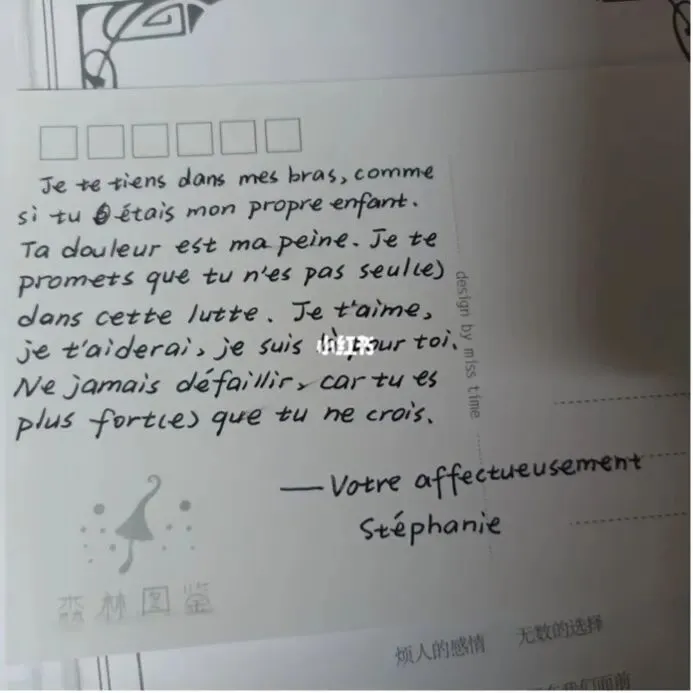 Je te tiens dans mes bras, comme
si tu étais mon propre enfant.
Ta douleur est ma peine. Je te
promets que tu n'es pas seul(e)
dans cette lutte. Je t'aime,
je t'aiderai, je suis là pour toi.
Ne jamais défaillir, car tu es
plus fort(e) que tu ne crois.
— Votre affectueusement
Stéphanie
design by miss time
小红书
森林图鉴
烦人的感情 无数的选择